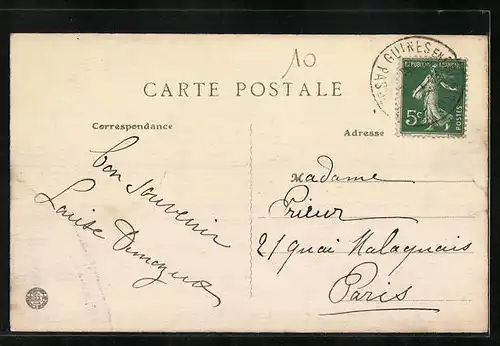 10
CARTE POSTALE
GUINES EN
PAS
REPUBLIQUE FRANÇAISE
5c
POSTES
Correspondance
Adresse
bon souvenir
Louise
Madame
Prieur
21 quai Malaquais
Paris